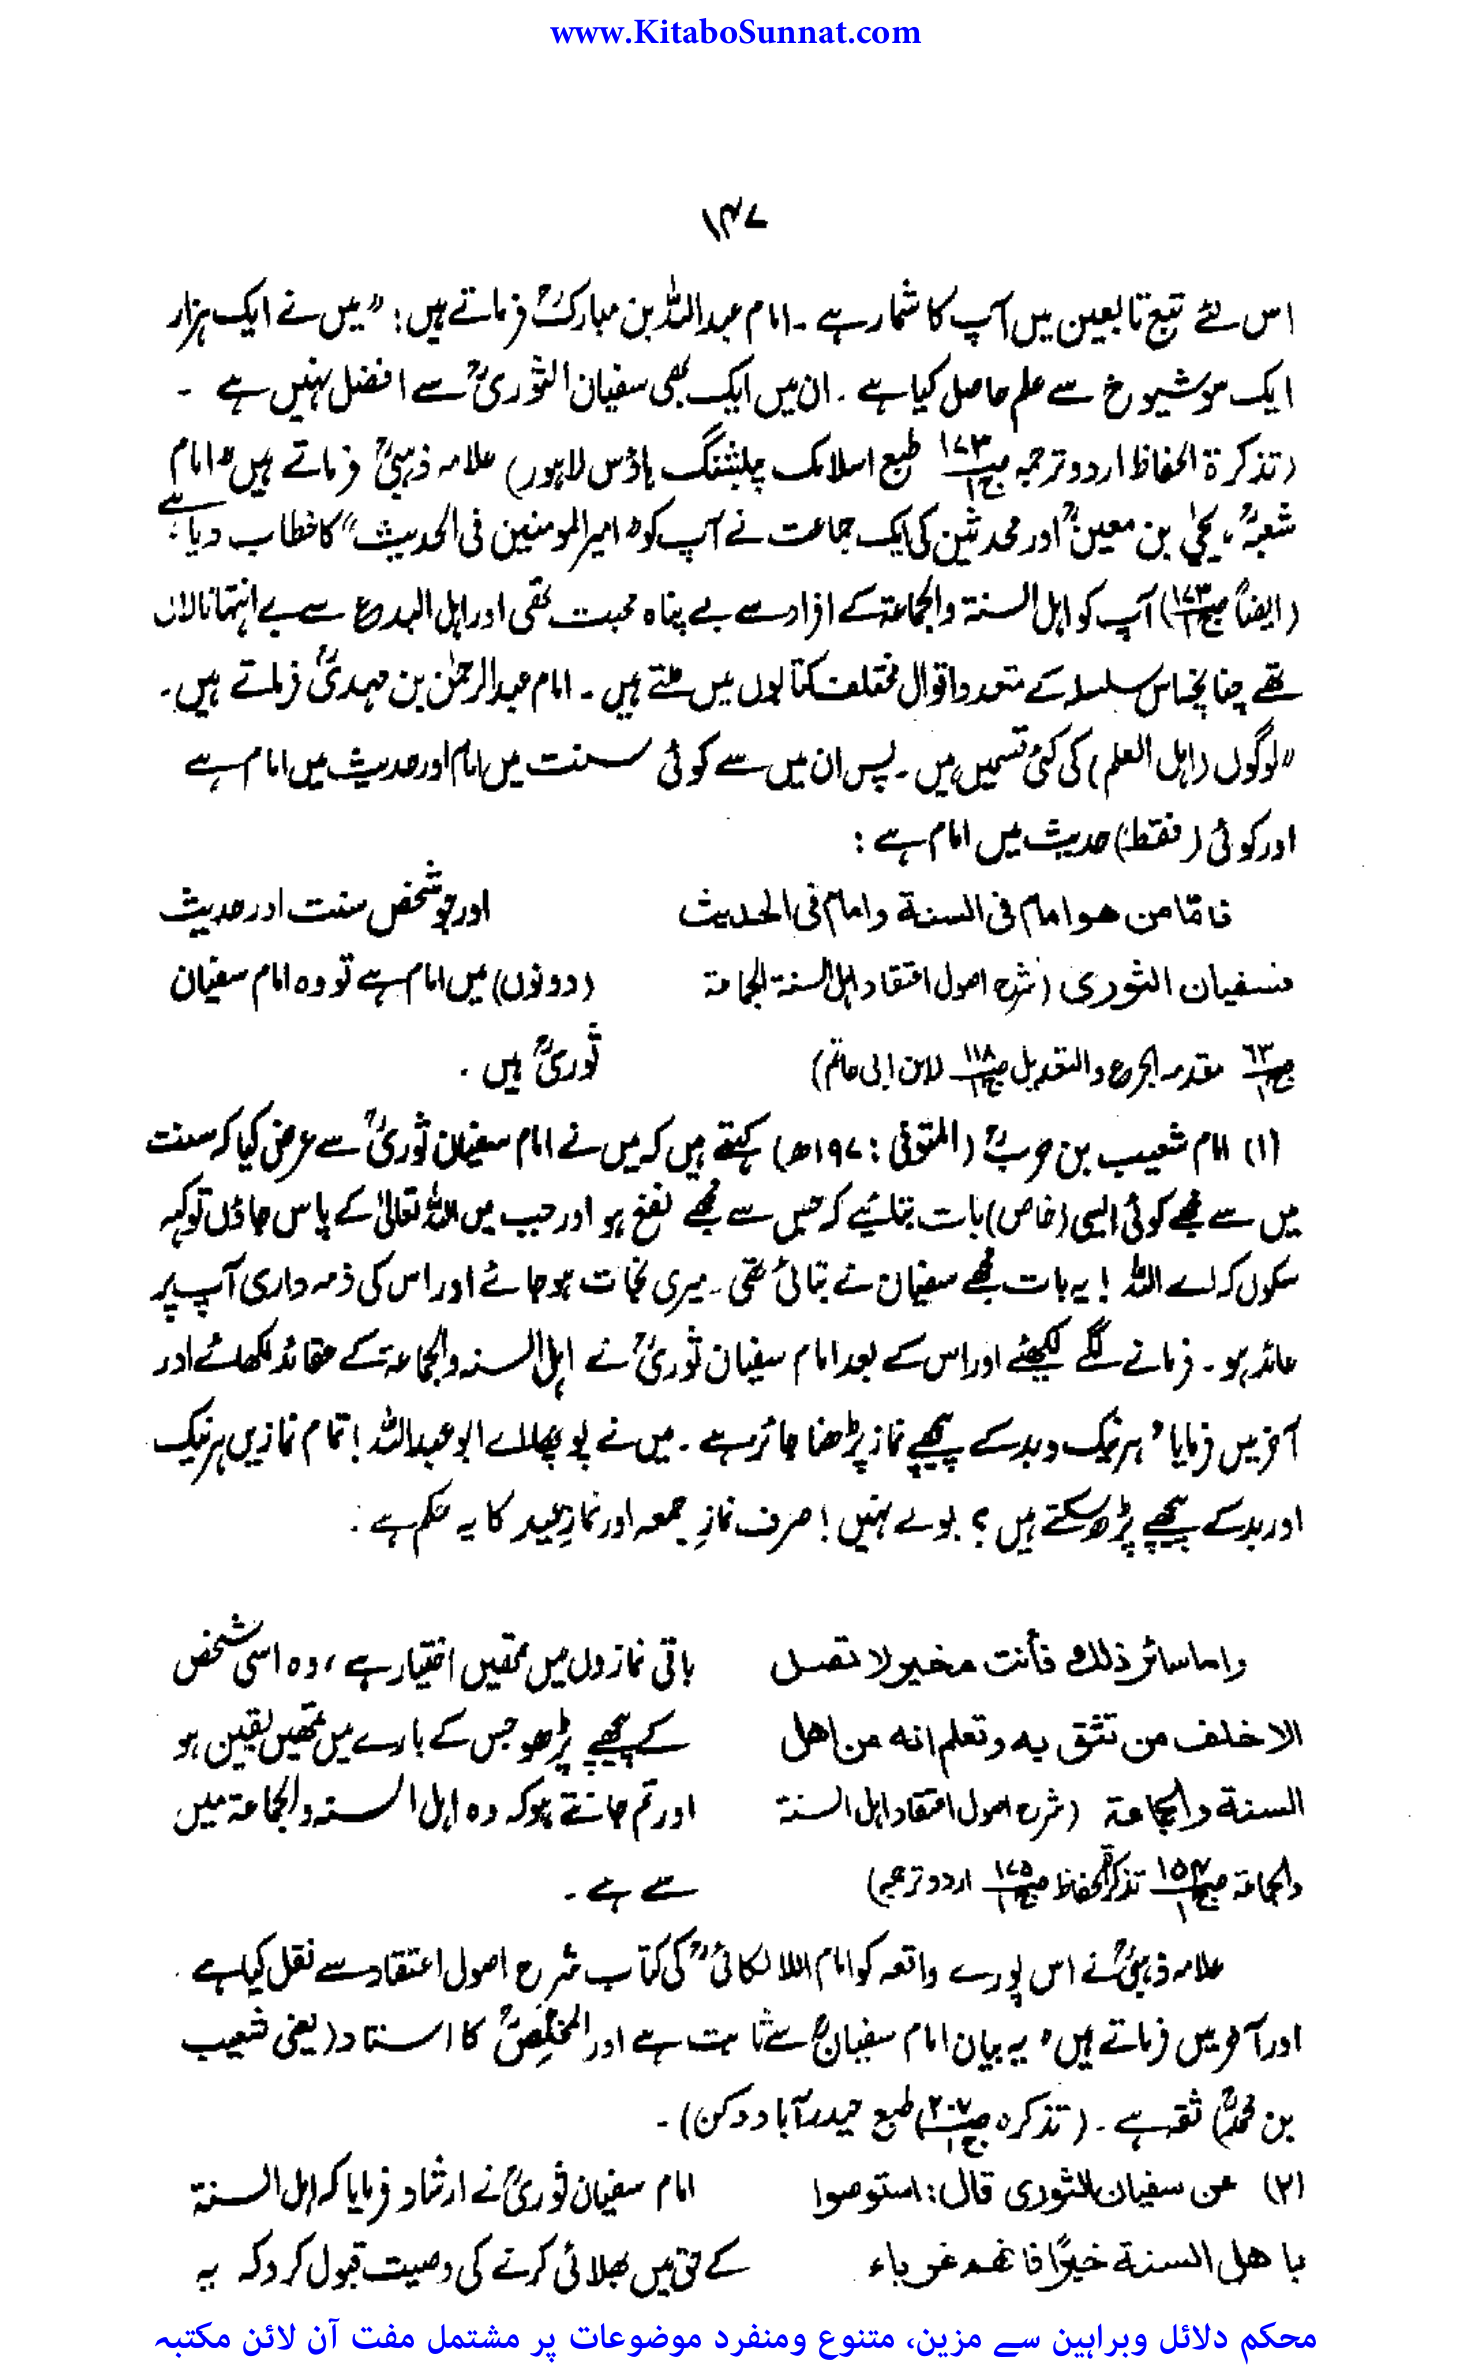 www.KitaboSunnat.com
۱۴۷
اس لئے تبع تابعین میں آپ کا شمار ہے ۔ امام عبداللہ بن مبارکؒ فرماتے ہیں: "میں نے ایک ہزار
ایک سو شیوخ سے علم حاصل کیا ہے ۔ ان میں ایک بھی سفیان الثوریؒ سے افضل نہیں ہے ۔
(تذکرۃ الحفاظ اردو ترجمہ ص۱۷۳ ج۱ طبع اسلامک پبلشنگ ہاؤس لاہور) علامہ ذہبیؒ فرماتے ہیں "امام
شعبہؒ، یحییٰ بن معینؒ اور محدثین کی ایک جماعت نے آپ کو "امیر المومنین فی الحدیث" کا خطاب دیا ہے"
(ایضاً ص۱۷۳ ج۱) آپ کو اہل السنۃ والجماعۃ کے افراد سے بے پناہ محبت تھی اور اہل البدع سے بے انتہا نالاں
تھے چنانچہ اس سلسلہ کے متعدد اقوال مختلف کتابوں میں ملتے ہیں ۔ امام عبدالرحمٰن بن مہدیؒ فرماتے ہیں۔
"لوگوں (اہل العلم) کی کئی قسمیں ہیں ۔ پس ان میں سے کوئی سنت میں امام اور حدیث میں امام ہے
اور کوئی (فقط) حدیث میں امام ہے :
فامّا من هو امام فی السنة وامام فی الحدیث
اور جو شخص سنت اور حدیث
فسفیان الثوری (شرح اصول اعتقاد اہل السنۃ الجماعۃ
(دونوں) میں امام ہے تو وہ امام سفیان
ص۶۳ ج۱ مقدمہ الجرح والتعدیل ص۱۱۸ ج۱ لابن ابی حاتم)
ثوریؒ ہیں ۔
(۱) امام شعیب بن حربؒ (المتوفی : ۱۹۷ھ) کہتے ہیں کہ میں نے امام سفیان ثوریؒ سے عرض کیا کہ سنت
میں سے مجھے کوئی ایسی (خاص) بات بتلائیے کہ جس سے مجھے نفع ہو اور جب میں اللہ تعالیٰ کے پاس جاؤں تو کہہ
سکوں کہ اے اللہ ! یہ بات مجھے سفیان نے بتائی تھی ۔ میری نجات ہو جائے اور اس کی ذمہ داری آپ پر
عائد ہو ۔ فرمانے لگے لکھئے اور اس کے بعد امام سفیان ثوریؒ نے اہل السنہ والجماعۃ کے عقائد لکھائے اور
آخر میں فرمایا "ہر نیک و بد کے پیچھے نماز پڑھنا جائز ہے ۔ میں نے پوچھا اے ابو عبداللہ ! تمام نمازیں ہر نیک
اور بد کے پیچھے پڑھ سکتے ہیں ؟ بولے نہیں ! صرف نمازِ جمعہ اور نمازِ عید کا یہ حکم ہے :
واما سائر ذلك فأنت مخیر لا تصل
باقی نمازوں میں تمھیں اختیار ہے، وہ اسی شخص
الا خلف من تثق به وتعلم انه من اهل
کے پیچھے پڑھو جس کے بارے میں تمھیں یقین ہو
السنة والجماعة (شرح اصول اعتقاد اہل السنۃ
اور تم جانتے ہو کہ وہ اہل السنہ والجماعۃ میں
والجماعۃ ص۱۵۴ ج۱ تذکرۃ الحفاظ ص۱۷۵ ج۱ اردو ترجمہ)
سے ہے ۔
علامہ ذہبیؒ نے اس پورے واقعہ کو امام اللالکائیؒ کی کتاب شرح اصول اعتقاد سے نقل کیا ہے ۔
اور آخر میں فرماتے ہیں "یہ بیان امام سفیانؒ سے ثابت ہے اور المخلِّصؒ کا استاد (یعنی شعیب
بن محمدؒ) ثقہ ہے ۔ (تذکرہ ص۲۰۷ ج۱ طبع حیدرآباد دکن) ۔
(۲) عن سفیان الثوری قال: استوصوا
امام سفیان ثوریؒ نے ارشاد فرمایا کہ اہل السنۃ
باهل السنة خیرًا فانهم غرباء
کے حق میں بھلائی کرنے کی وصیت قبول کرو کہ یہ
محکم دلائل وبراہین سے مزین، متنوع ومنفرد موضوعات پر مشتمل مفت آن لائن مکتبہ